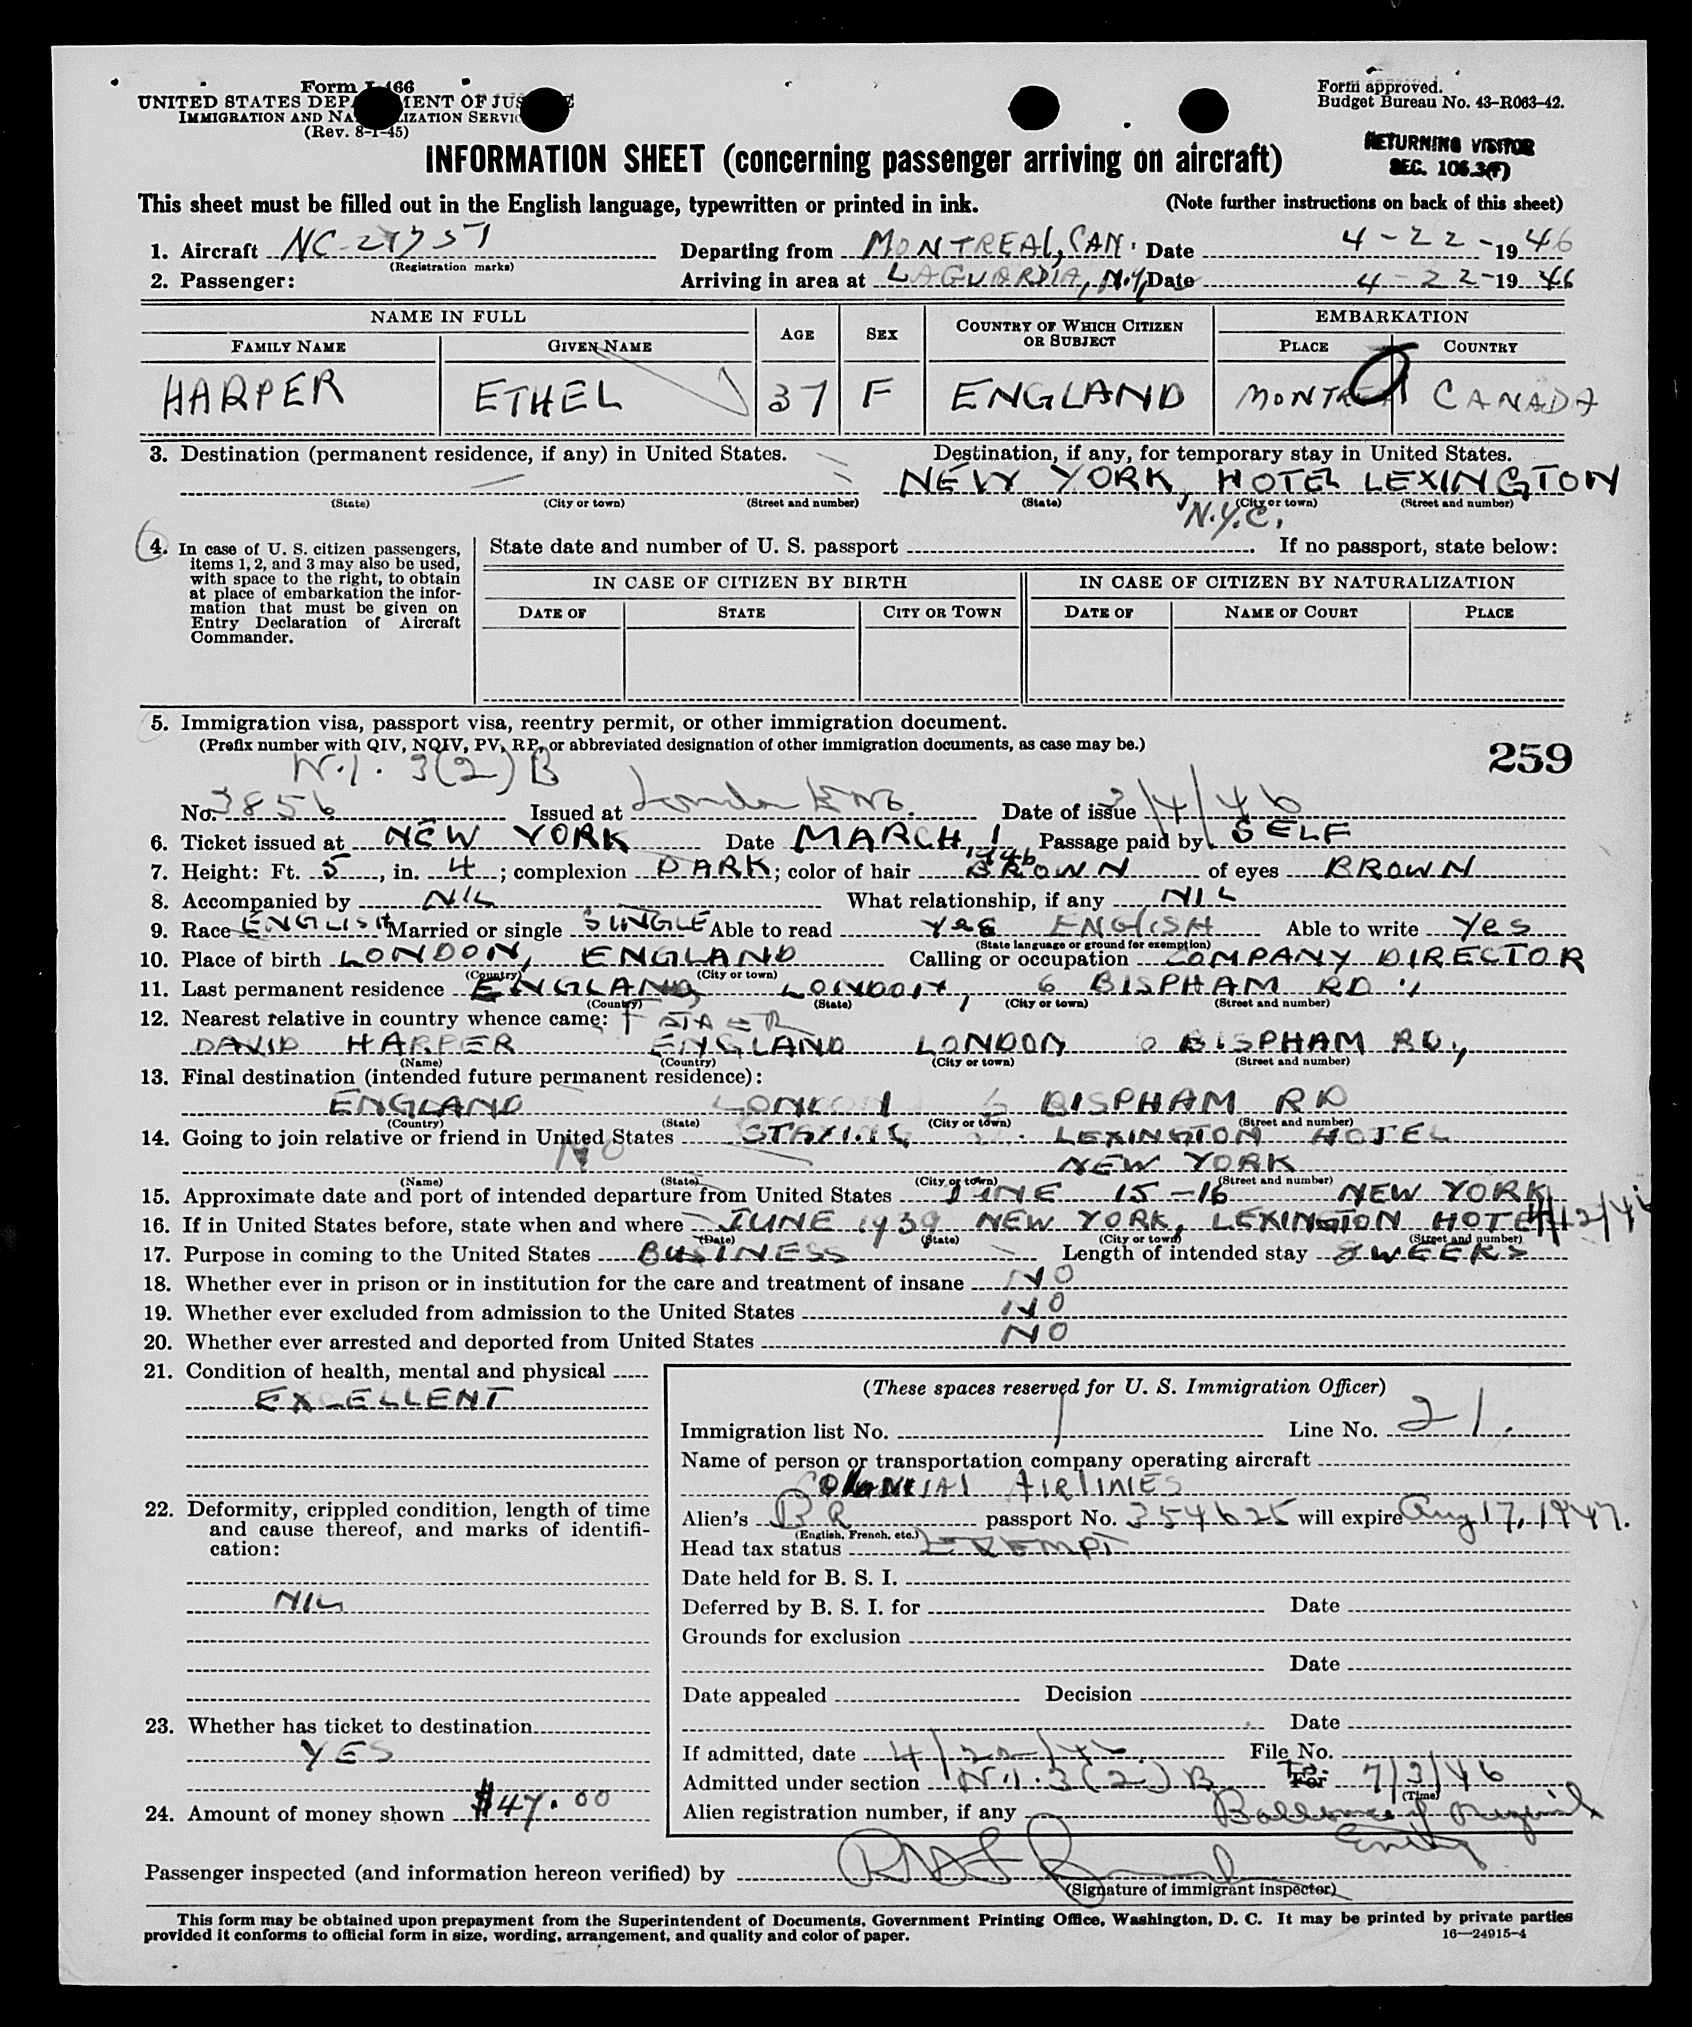 Form I-466
UNITED STATES DEPARTMENT OF JUSTICE
IMMIGRATION AND NATURALIZATION SERVICE
(Rev. 8-1-45)
Form approved.
Budget Bureau No. 43-R063-42.
RETURNING VISITOR
SEC. 106.3(F)
INFORMATION SHEET (concerning passenger arriving on aircraft)
This sheet must be filled out in the English language, typewritten or printed in ink. (Note further instructions on back of this sheet)
1. Aircraft NC- Departing from MONTREAL, CAN. Date 4-22-1946
(Registration marks)
2. Passenger: Arriving in area at LAGUARDIA, N.Y. Date 4-22-1946
NAME IN FULL AGE SEX COUNTRY OF WHICH CITIZEN OR SUBJECT EMBARKATION
FAMILY NAME GIVEN NAME PLACE COUNTRY
HARPER ETHEL 37 F ENGLAND MONTREAL CANADA
3. Destination (permanent residence, if any) in United States. Destination, if any, for temporary stay in United States.
NEW YORK, HOTEL LEXINGTON
(State) (City or town) (Street and number) (State) (City or town) (Street and number)
N.Y.C.
4. In case of U. S. citizen passengers, items 1, 2, and 3 may also be used, with space to the right, to obtain at place of embarkation the information that must be given on Entry Declaration of Aircraft Commander.
State date and number of U. S. passport . If no passport, state below:
IN CASE OF CITIZEN BY BIRTH IN CASE OF CITIZEN BY NATURALIZATION
DATE OF STATE CITY OR TOWN DATE OF NAME OF COURT PLACE
5. Immigration visa, passport visa, reentry permit, or other immigration document.
(Prefix number with QIV, NQIV, PV, RP, or abbreviated designation of other immigration documents, as case may be.)
259
N.I. 3(2)B
No. 3856 Issued at London Eng. Date of issue 3/4/46
6. Ticket issued at NEW YORK Date MARCH, 1 1946 Passage paid by SELF
7. Height: Ft. 5, in. 4; complexion DARK; color of hair BROWN of eyes BROWN
8. Accompanied by NIL What relationship, if any NIL
9. Race ENGLISH Married or single SINGLE Able to read Yes ENGLISH Able to write Yes
(State language or ground for exemption)
10. Place of birth LONDON, ENGLAND Calling or occupation COMPANY DIRECTOR
(Country) (City or town)
11. Last permanent residence ENGLAND, LONDON, 6 BISPHAM RD.,
(Country) (State) (City or town) (Street and number)
12. Nearest relative in country whence came: FATHER
DAVID HARPER ENGLAND LONDON 6 BISPHAM RD.,
(Name) (Country) (City or town) (Street and number)
13. Final destination (intended future permanent residence):
ENGLAND LONDON 6 BISPHAM RD
(Country) (State) (City or town) (Street and number)
14. Going to join relative or friend in United States STAYING LEXINGTON HOTEL
NO NEW YORK
(Name) (State) (City or town) (Street and number)
15. Approximate date and port of intended departure from United States JUNE 15-16 NEW YORK
16. If in United States before, state when and where JUNE 1939 NEW YORK, LEXINGTON HOTEL 4/12/46
(Date) (State) (City or town) (Street and number)
17. Purpose in coming to the United States BUSINESS Length of intended stay 8 WEEKS
18. Whether ever in prison or in institution for the care and treatment of insane NO
19. Whether ever excluded from admission to the United States NO
20. Whether ever arrested and deported from United States NO
21. Condition of health, mental and physical
EXCELLENT
22. Deformity, crippled condition, length of time and cause thereof, and marks of identification:
NIL
23. Whether has ticket to destination
YES
24. Amount of money shown $47.00
(These spaces reserved for U. S. Immigration Officer)
Immigration list No. 1 Line No. 21.
Name of person or transportation company operating aircraft
COLONIAL AIRLINES
Alien's BR passport No. 354625 will expire Aug 17, 1947.
(English, French, etc.)
Head tax status EXEMPT
Date held for B. S. I.
Deferred by B. S. I. for Date
Grounds for exclusion
Date
Date appealed Decision
Date
If admitted, date 4/22/46. File No.
Admitted under section N.I. 3(2)B For To: 7/3/46
(Time)
Alien registration number, if any Balance of Original
Entry
Passenger inspected (and information hereon verified) by
(Signature of immigrant inspector)
This form may be obtained upon prepayment from the Superintendent of Documents, Government Printing Office, Washington, D. C. It may be printed by private parties
provided it conforms to official form in size, wording, arrangement, and quality and color of paper.
16—24915-4